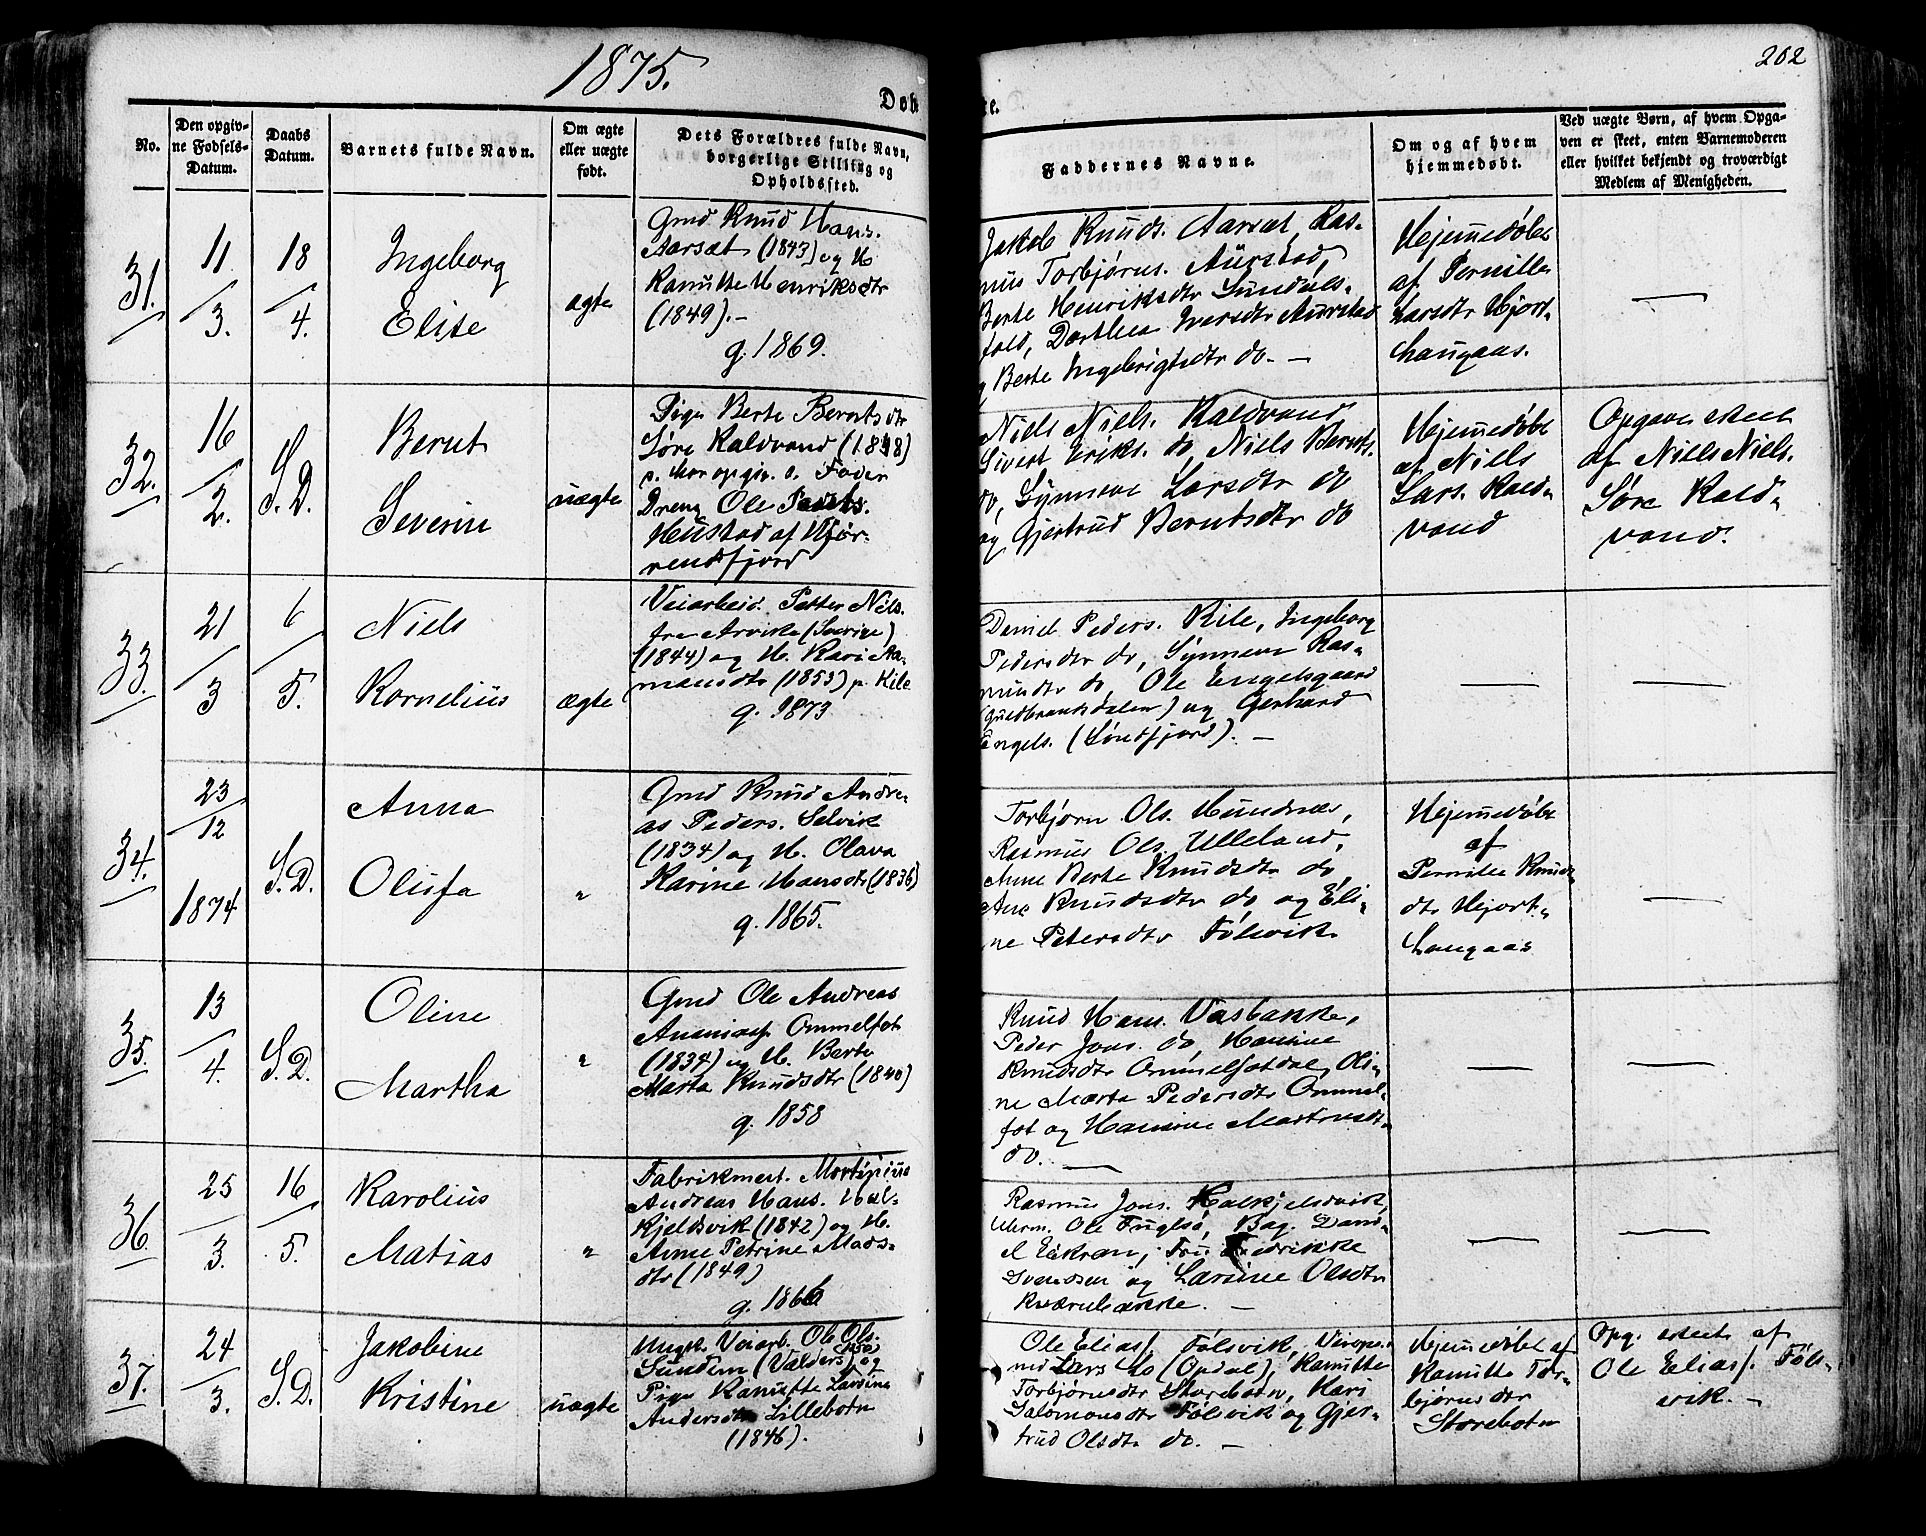 1875.
202
Døb
te.
No.
Den opgiv-
ne Fødsels-
Datum.
Daabs
Datum.
Barnets fulde Navn.
Om ægte
eller uægte
født.
Dets Forældres fulde Navn,
borgerlige Stilling og
Opholdssted.
Faddernes Navne.
Om og af hvem
hjemmedøbt.
Ved uægte Børn, af hvem Opga-
ven er skeet, enten Barnemoderen
eller hvilket bekjendt og troværdigt
Medlem af Menigheden.
31.
11/3.
18/4.
Ingeborg
Elise
ægte
Gmd Knud Hans.
Aarsæt (1843) og H.
Kanutte Henriksdtr
(1849).-
g. 1869.
Jakob Knuds. Aarsæt, Ras-
mus Torbjørns. Aurstad,
Berte Henriksdtr Sundals-
fold, Dorthea Iversdtr Aurstad
og Berte Ingebrigtsdtr do. -
Hjemmedøbt
af Pernille
Larsdtr Hjort-
haugaas.
—
32.
16/2.
S.D.
Bernt
Severin
uægte
Pige Berte Berntsdtr
Søre Kaldvand (1848)
s. har opgiv. s. Fader
Dreng Ole Peders.
Hustad af Hjør-
rendfjord
Niels Niels. Kaldvand
Sivert Eriks. do, Niels Bernts.
do, Synneve Larsdtr do
og Gjertrud Berntsdtr do
Hjemmedøbt
af Niels
Lars. Kald-
vand
Opgaven skeet
af Niels Niels.
Søre Kald-
vand.
33.
21/3
6/5.
Niels
Kornelius
ægte
Veiarbeid. Petter Niels.
fra Arvika (Sverige)
(1844) og H. Kari Aa-
mundsdtr (1853) p. Kile
g. 1873
Daniel Peders. Kile, Ingeborg
Pedersdtr do, Synneve Ras-
musdtr do, Ole Engelsgaard
(Guldbrandsdalen) og Gerhard
Engels. (Søndfjord). -
—
—
34.
23/12
1874
S.D.
Anna
Olufa
"
Gmd Knud Andre-
as Peders. Selvik
(1834) og H. Olava
Karine Hansdtr (1836)
g. 1865.
Torbjørn Ols. Hundnæs,
Rasmus Ols. Ulleland,
Anne Berte Knudsdtr do,
Ane Knudsdtr do og Eli-
ne Petersdtr Følsvik
Hjemmedøbt
af
Pernille Knuds-
dtr Hjort-
haugaas
—
35.
13/4.
S.D.
Oline
Martha
"
Gmd Ole Andreas
Ananiass. Ommelfot
(1834) og H. Berte
Marta Knudsdtr (1840)
g. 1858
Knud Hans. Vasbakke,
Peder Jons. do, Hansine
Knudsdtr Ommelfotdal, Oli-
ne Marta Pedersdtr Ommel-
fot og Hansine Martinusdtr
do. —
—
—
36.
25/3.
16/5.
Karolius
Matias
"
Fabrikmest. Mortinius
Andreas Hans. Hal-
kjeldsvik (1842) og H.
Anne Petrine Mads-
dtr (1849)
g. 1866
Rasmus Jons. Halkjelsvik,
Uhrm. Ole Fuglsø, Bag. Dani-
el Eikrem, Fru Fredrikke
Svendsen og Larsine Olsdtr
Kværnbakke. -
—
—
37.
24/3.
S.D.
Jakobine
Kristine
uægte
Ungk. Veiarb. Ole Ols.
Sundem (Valders) og
Pige Kanutte Lavine
Andersdtr Lillebotn
(1846).
Ole Eliass. Følsvik, Viseps-
md Lars Lo (Opdal), Kanutte
Torbjørnsdtr Storebotn, Kari
Salomonsdtr Følsvik og Gjer-
trud Olsdtr do. -
Hjemmedøbt af
Kanutte Tor-
bjørnsdtr
Storebotn
Opg. skeet af
Ole Eliass. Føls-
vik. -